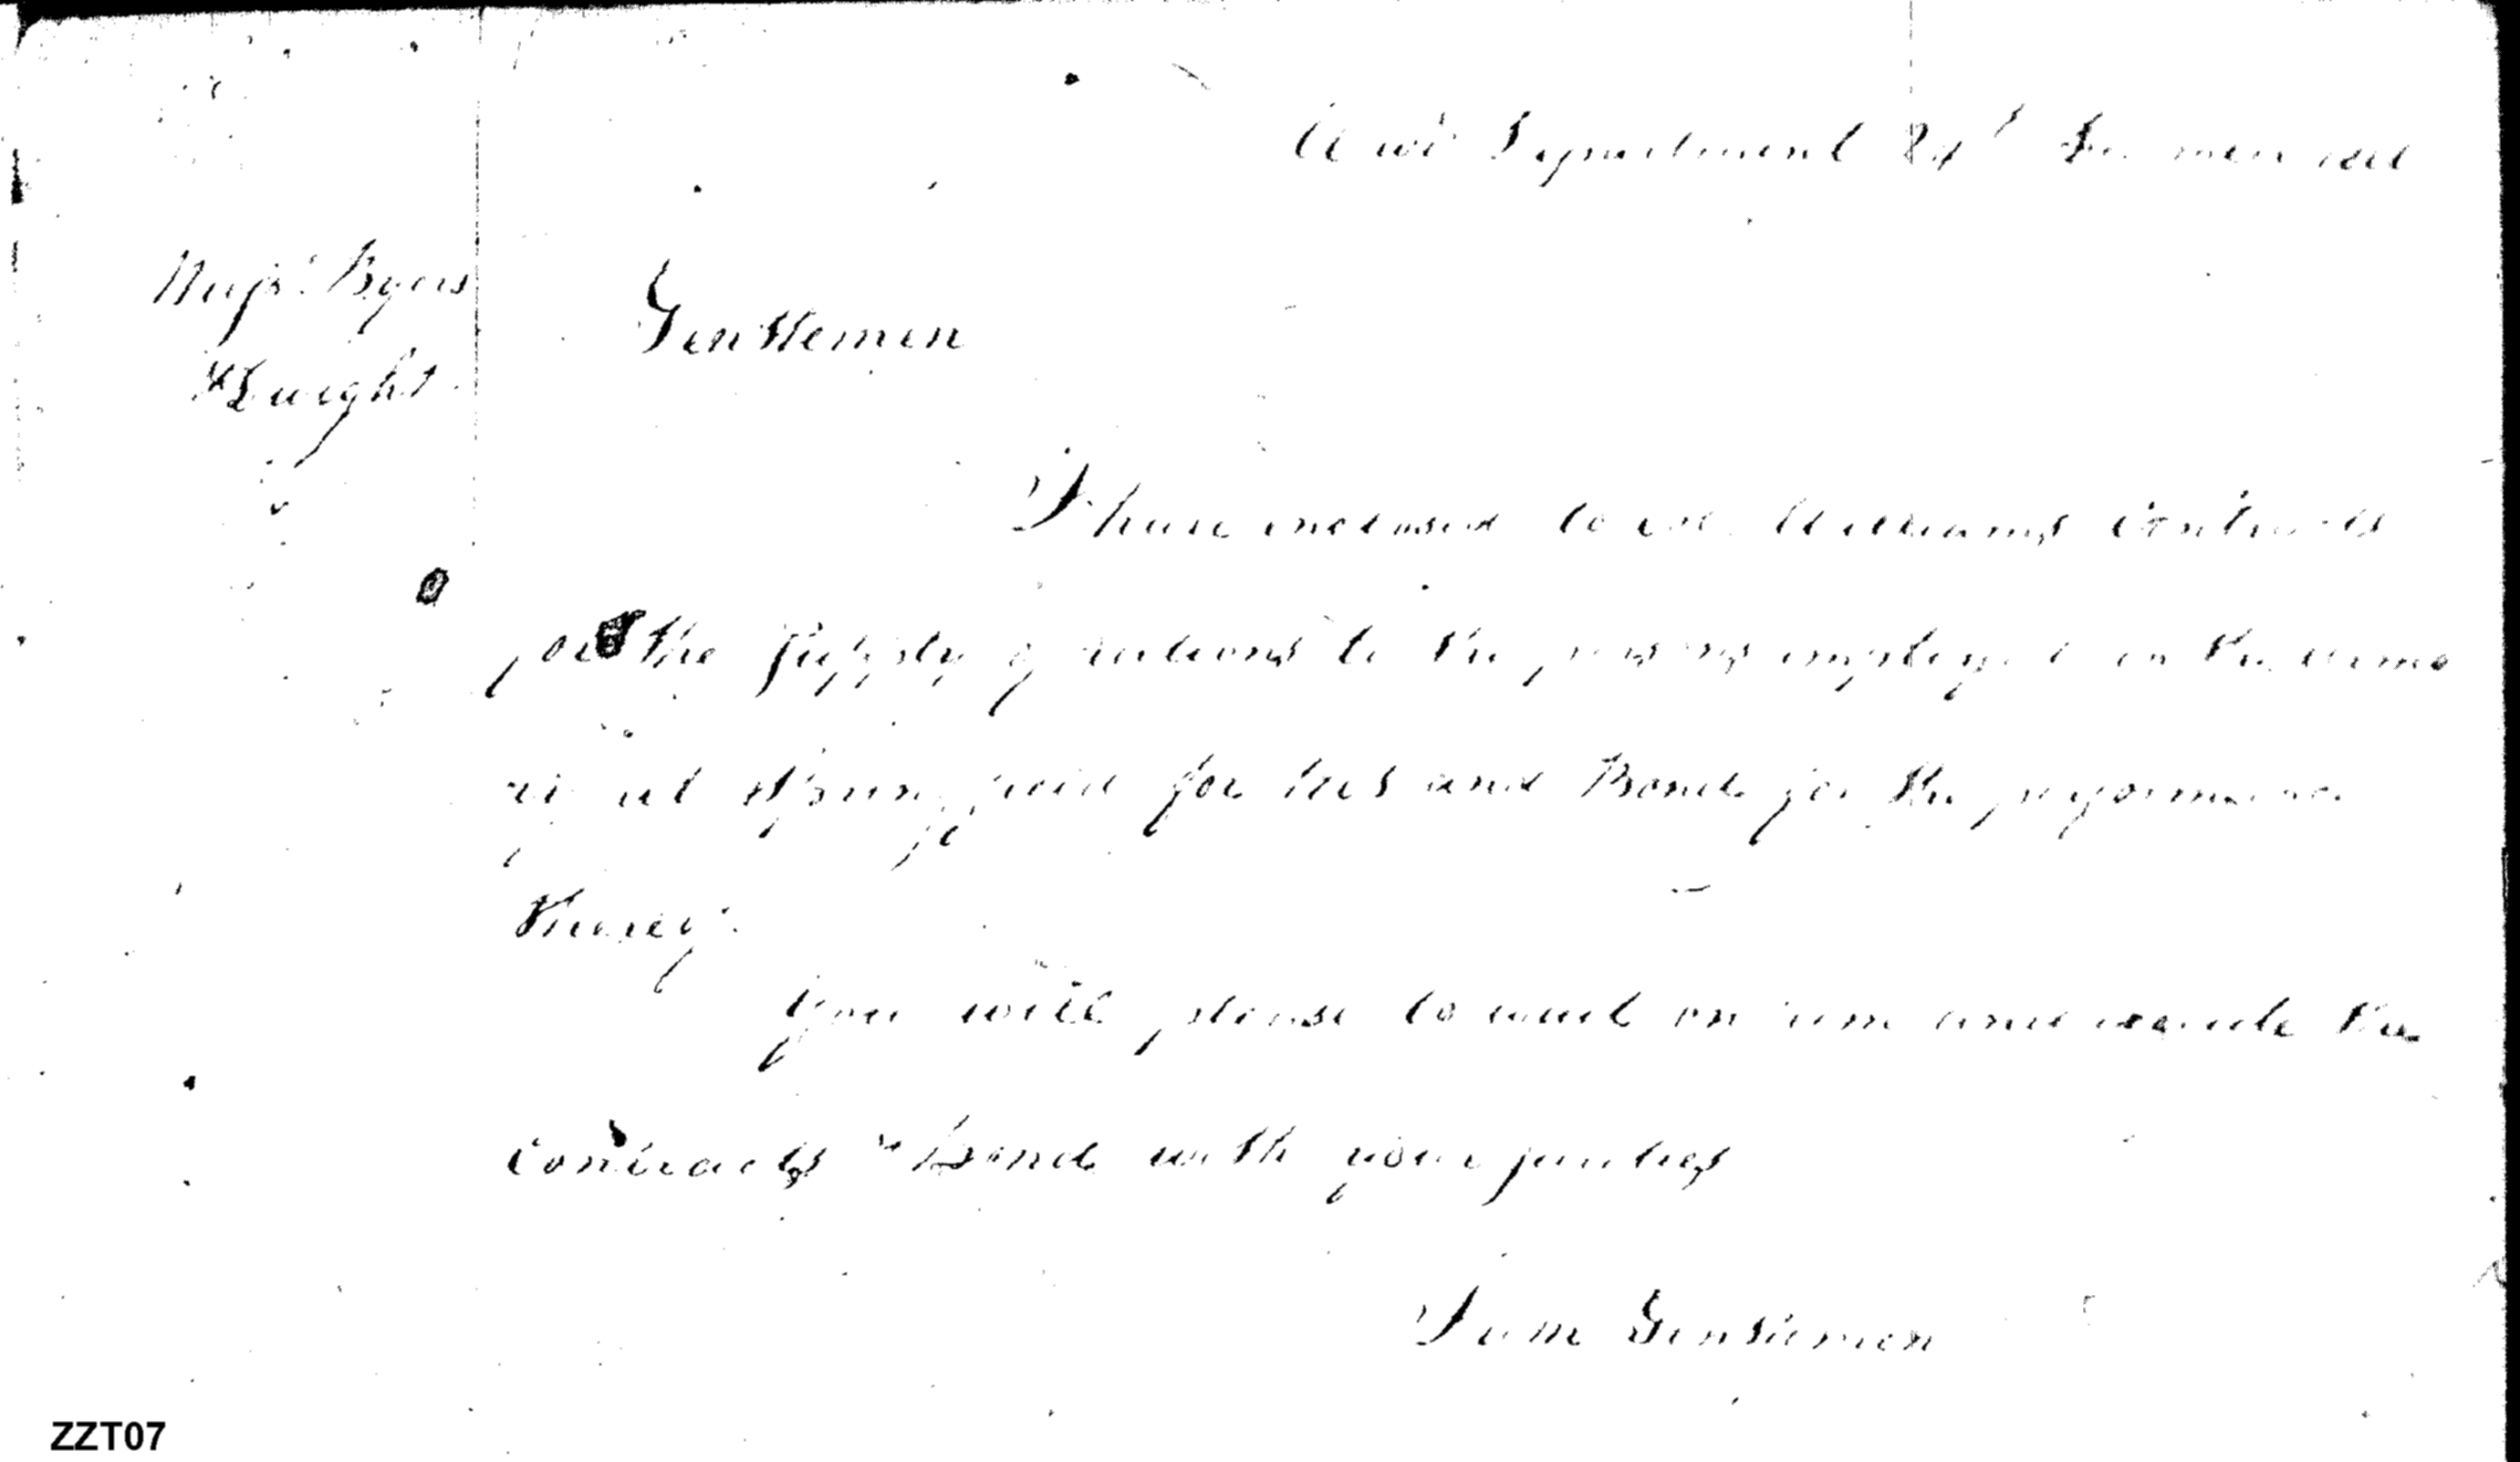 War Department 21st
Majrs. Byers
& Dwight
Gentlemen
I have inclosed to Col. Williams Contracts
for the supply of rations to the persons employed in the armo
ry at Springfield for 1801 and Bond for the performance
thereof.
You will please to wait on him and execute the
Contracts & Bond with your sureties
I am Gentlemen
ZZT07